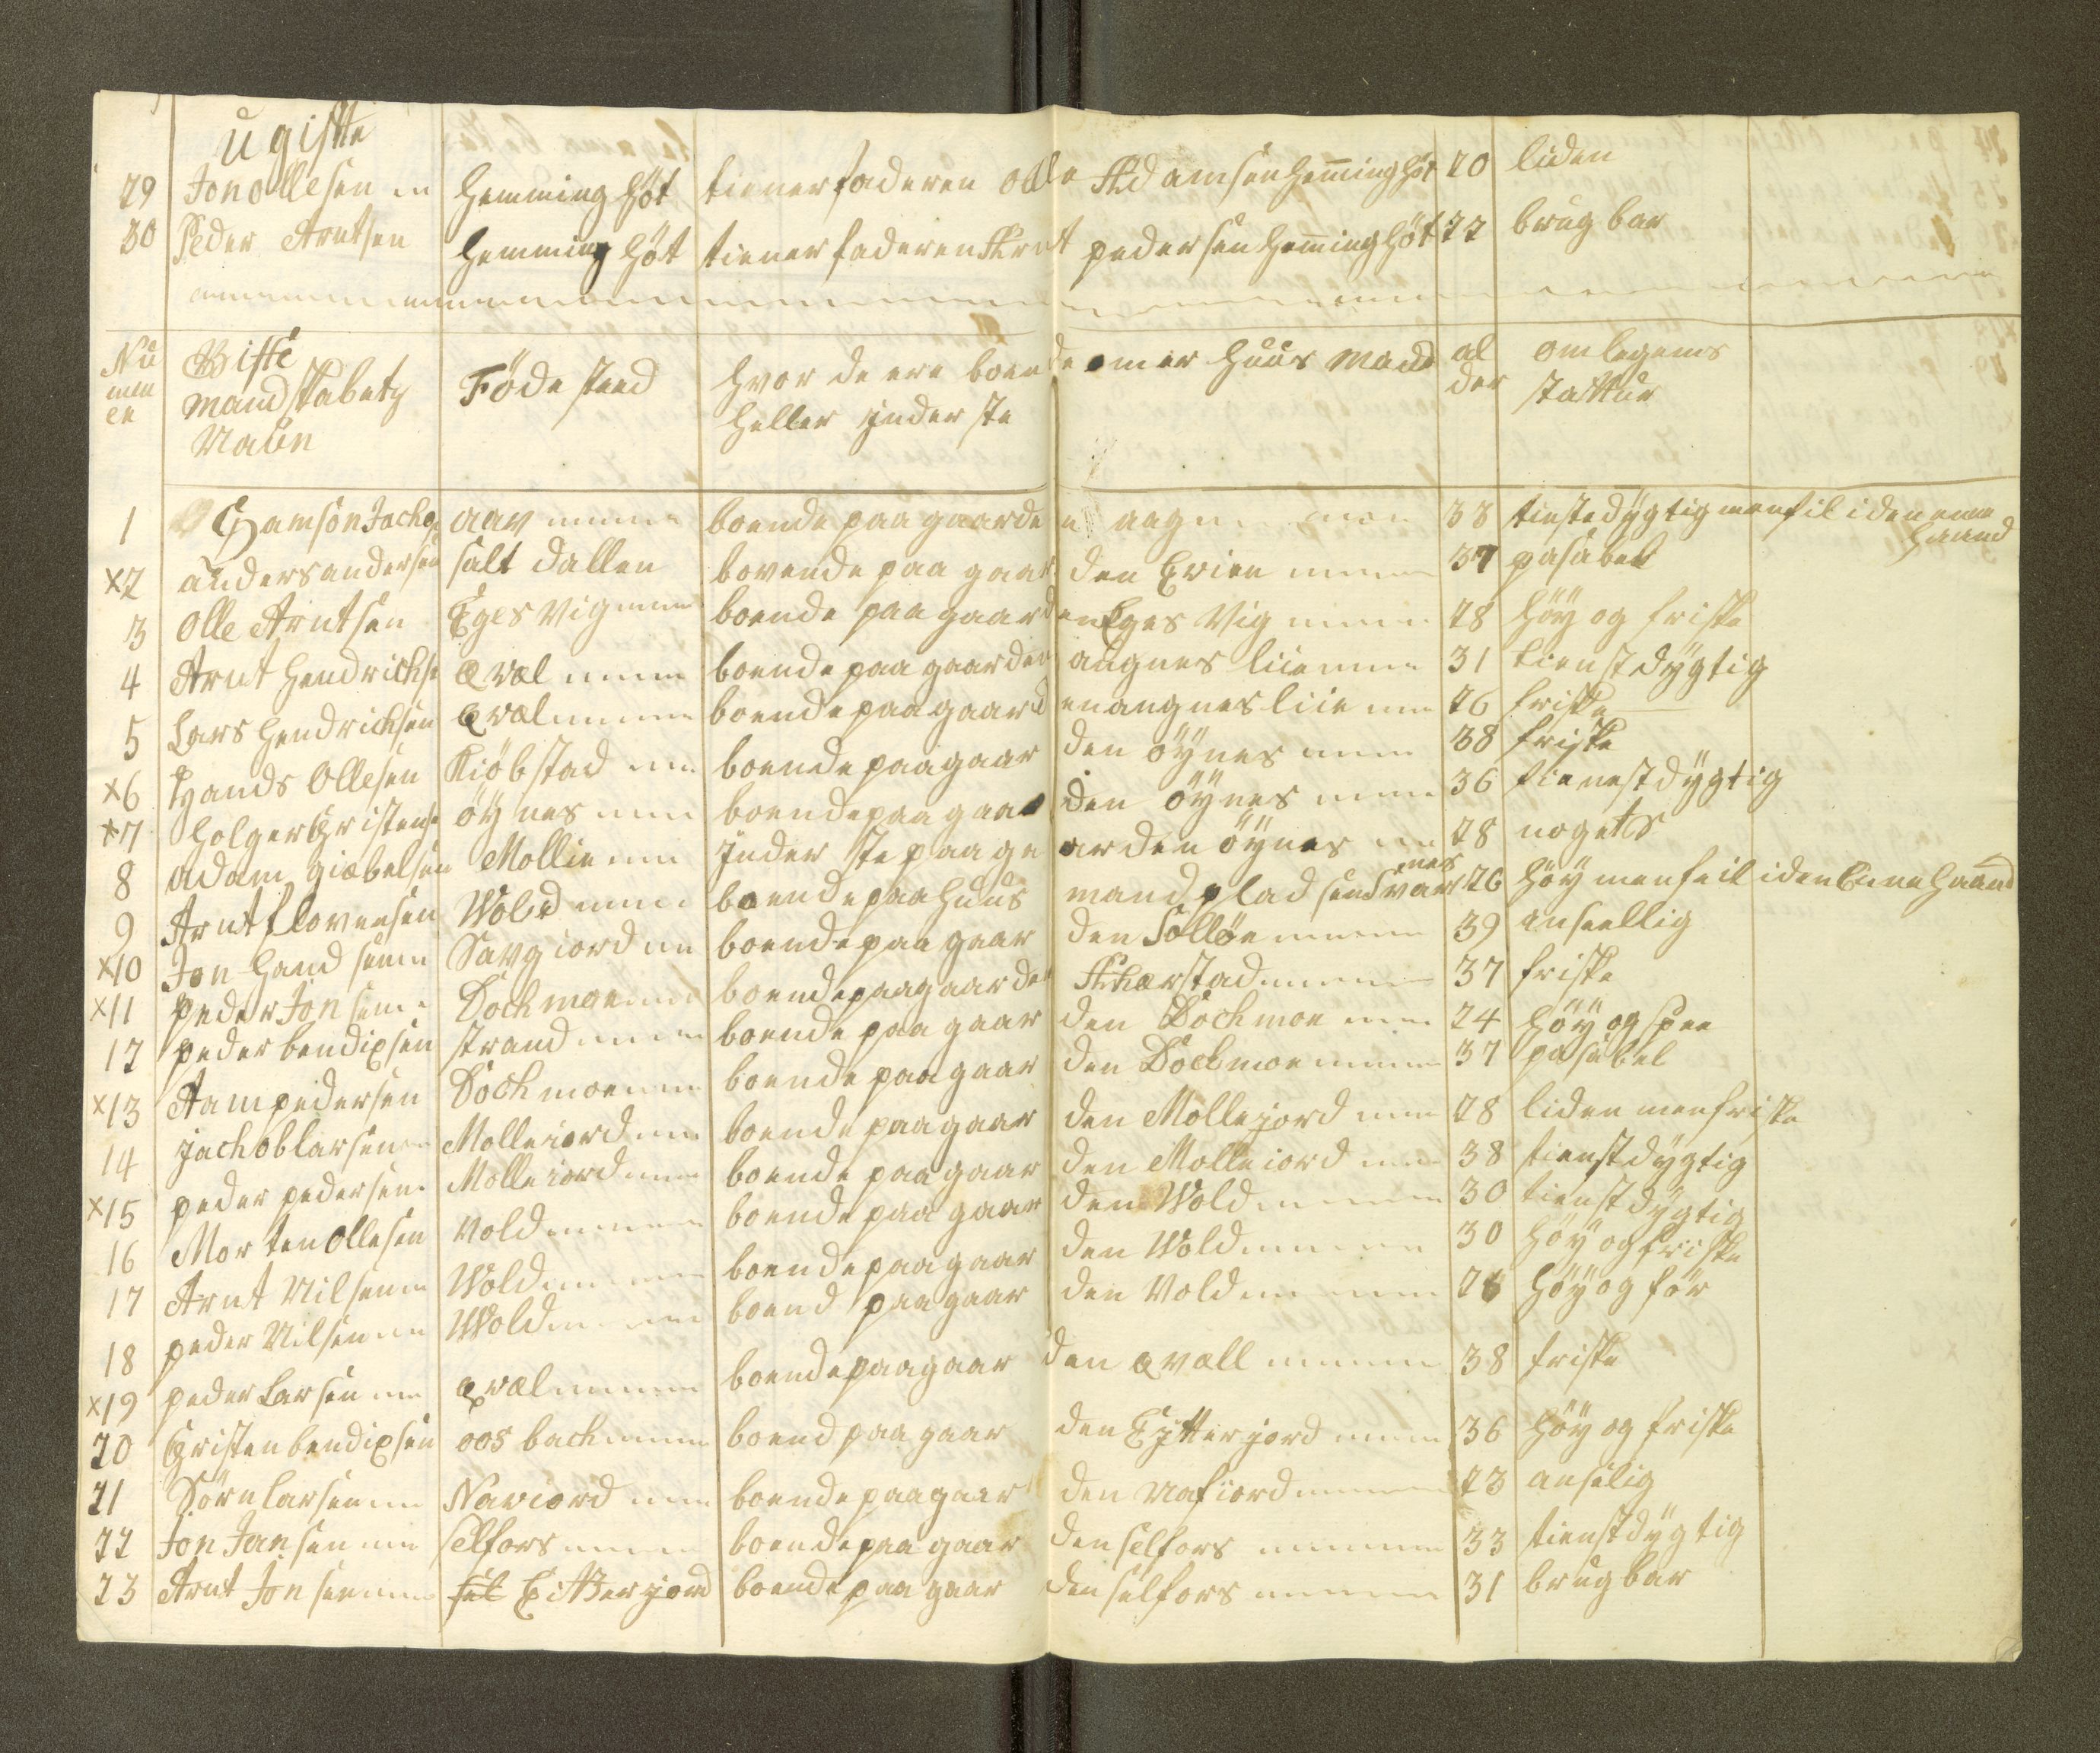 ugifte
29 Jon ollesen Hemming Höt tiener faderen olle Adamsen Heminghöt 20 liden
30 Peder Arntsen Hemming Höt tiener faderen Arnt pedersen Heminghöt 22 brugbar
Nu Gifte Föde steed Hvor de ere boende om er Huus Mand al om legems
mer mandskabetz Heller inderste der Stattur
Naun
1 Samson Jachop aav boende paa gaarden aagnes 38 tienstdygtig men feil i den ene
Haand
x2 anders andersen salt dallen bovende paa gaarden Evien 37 pasabel
3 Olle Arntsen Eges Vig boende paa gaarden Eges Vig 28 höy og friske
4 Arnt Hendrichs Qvæl boende paa gaarden augnes liie 31 tienstdygtig
5 Lars Hendrichsen Qvæl boende paa gaarden angnes liie 26 friske
x6 Hands Ollesen Kiöbstad boende paa gaarden öynes 38 friske
x7 Holger Christens öynes boende paa gaarden öynes 36 tienestdygtig
8 Adam giæbelsen Mollie Inderste paa gaarden öynes 28
nes
9 Arnt flovensen Wold boende paa Huus mand pladsen Svar 26 Höy men feil i den Eene Haand
x10 Jon Handsen Savgiord boende paa gaarden Solløe 39 anseellig
x11 peder Jonsen Dochmoe boende paa gaarden Skærstad 37 friske
12 peder bendixsen strand boende paa gaarden Dochmoe 24 Höy og spee
x13 Aam pedersen Dochmoe boende paa gaarden Dochmoe 37 pasabel
14 Jachob larsen Molleiord boende paa gaarden Mollejord 28 liden men friske
x15 peder pedersen Molleiord boende paa gaarden Molleiord 38 tienstdygtig
16 Morten Ollesen Vold boende paa gaarden Wold 30 tienstdygtig
17 Arnt Nilsen Wold boende paa gaarden Wold 30 Höy og friske
18 peder Nilsen Wold boend paa gaarden Vold 26 Höy og för
x19 peder Larsen Qvæl boende paa gaarden Qvæll 38 friske
20 Christen bendixsen oosbach boend paa gaarden Eitterjord 36 Höy og friske
21 Sörn larsen Naviord boende paa gaarden Nafiord 23 anselig
22 Jon Jensen selfors boende paa gaarden selfors 33 tienstdygtig
23 Arnt Jonsen sel Eitterjord boende paa gaarden selfors 31 brugbar